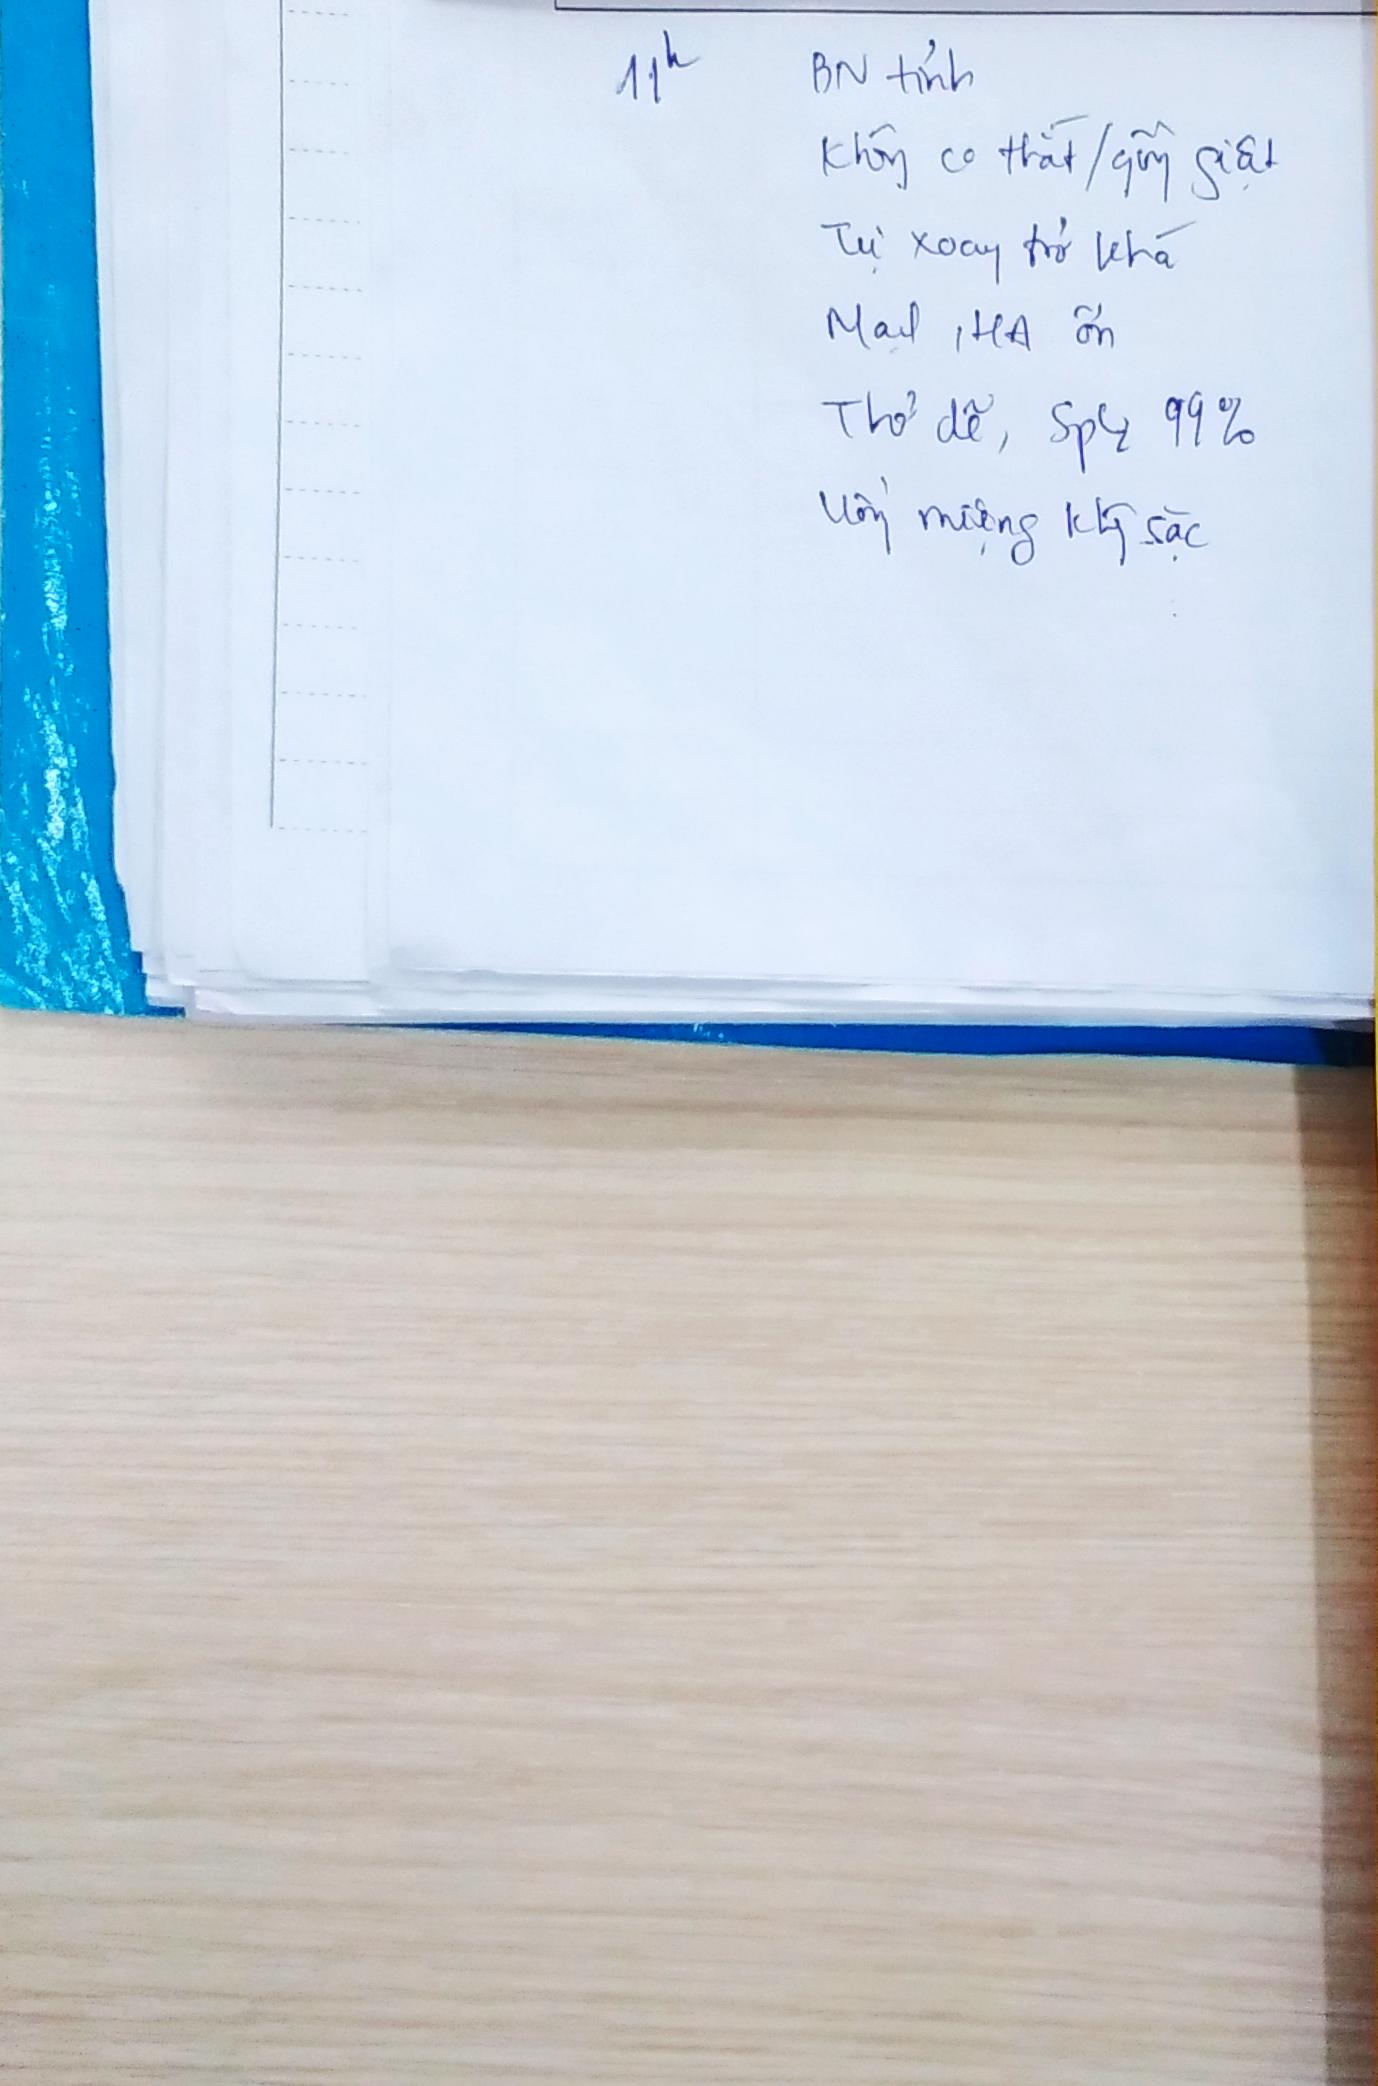 11h BN tỉnh
Không co thắt/gồng giật
Tự xoay trở khá
Mạch, HA ổn
Thở dễ, SpO2 99%
Uống miệng khg sặc